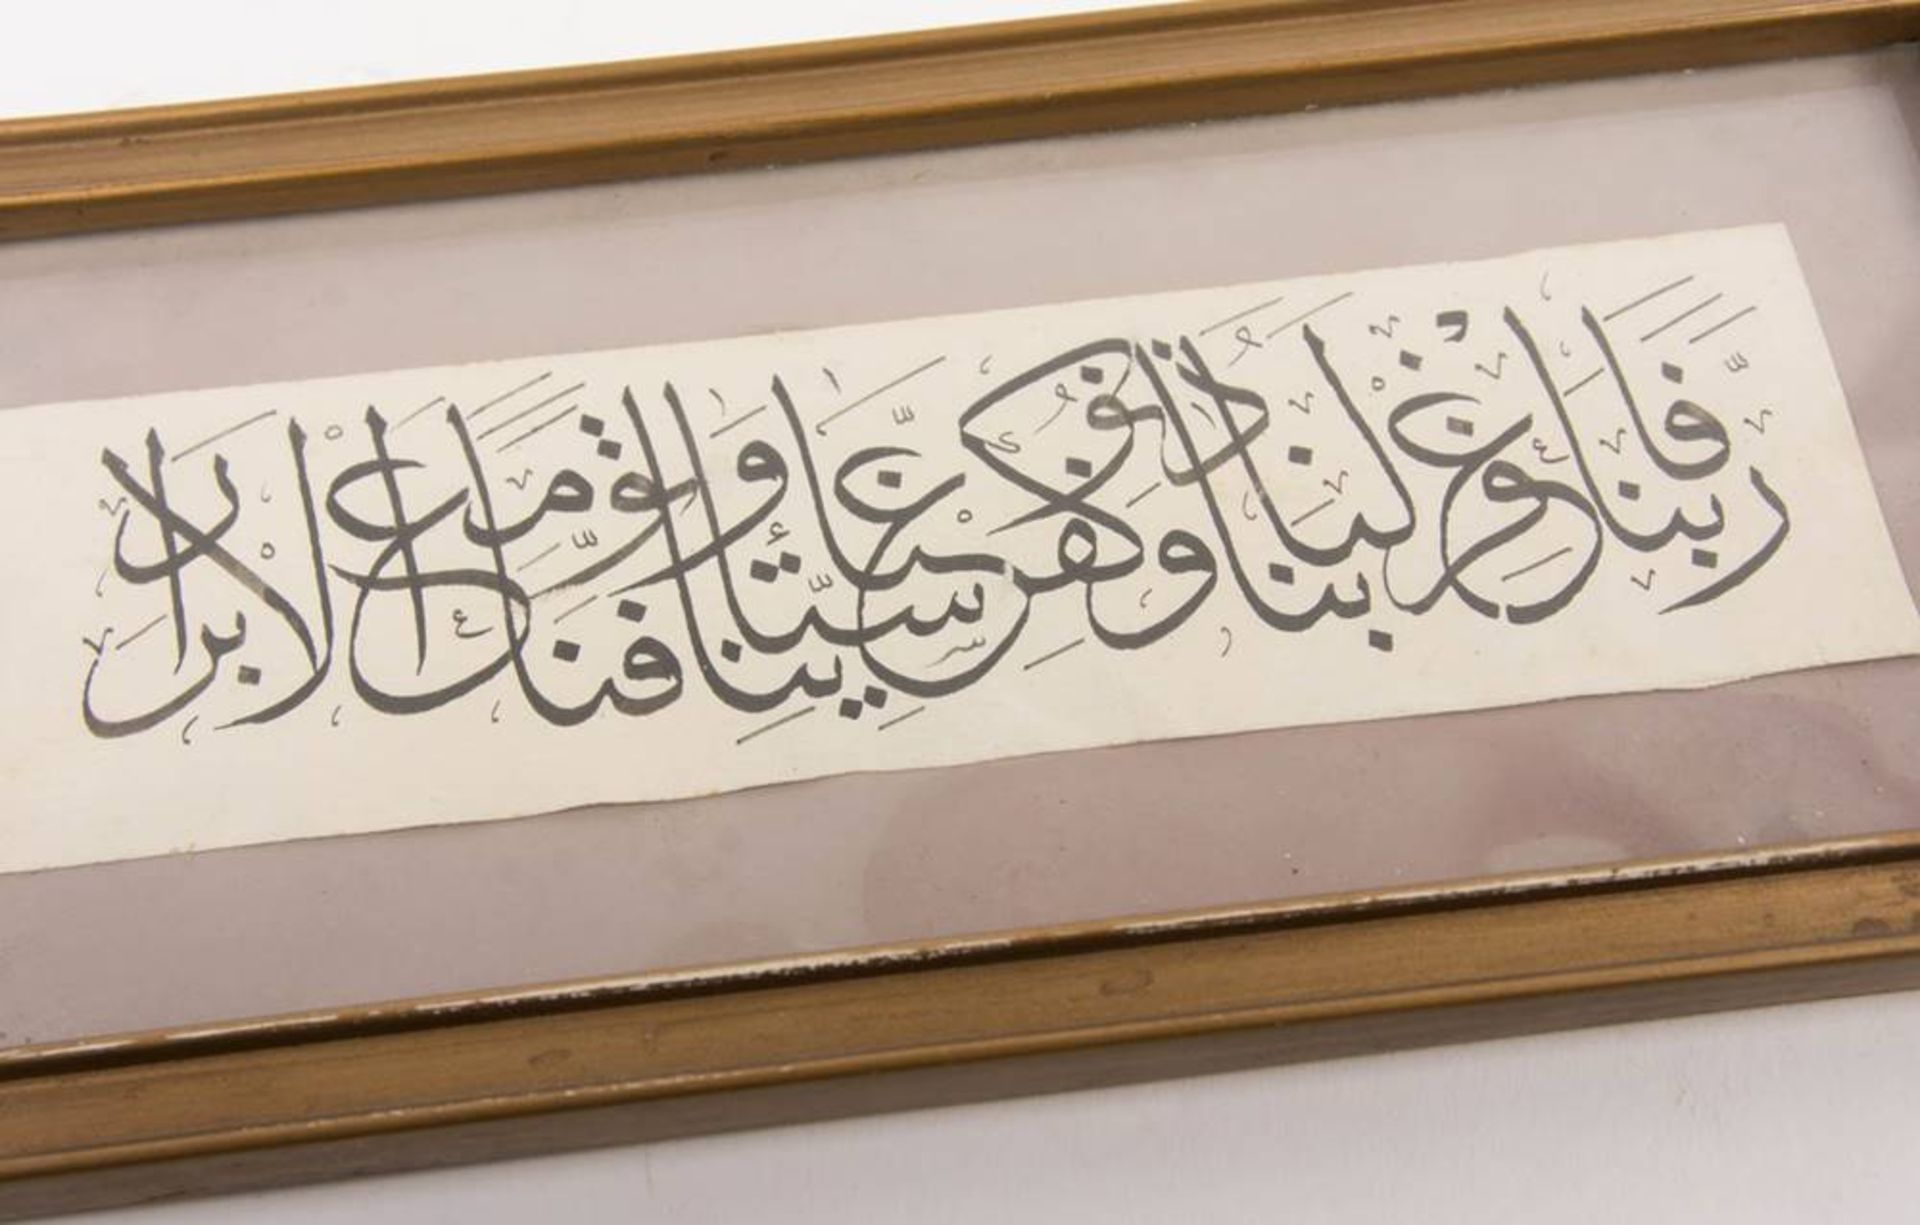 ربنا فاغفر لنا ذنوبنا وكفر عنا سيئاتنا وتوفنا مع الابرار